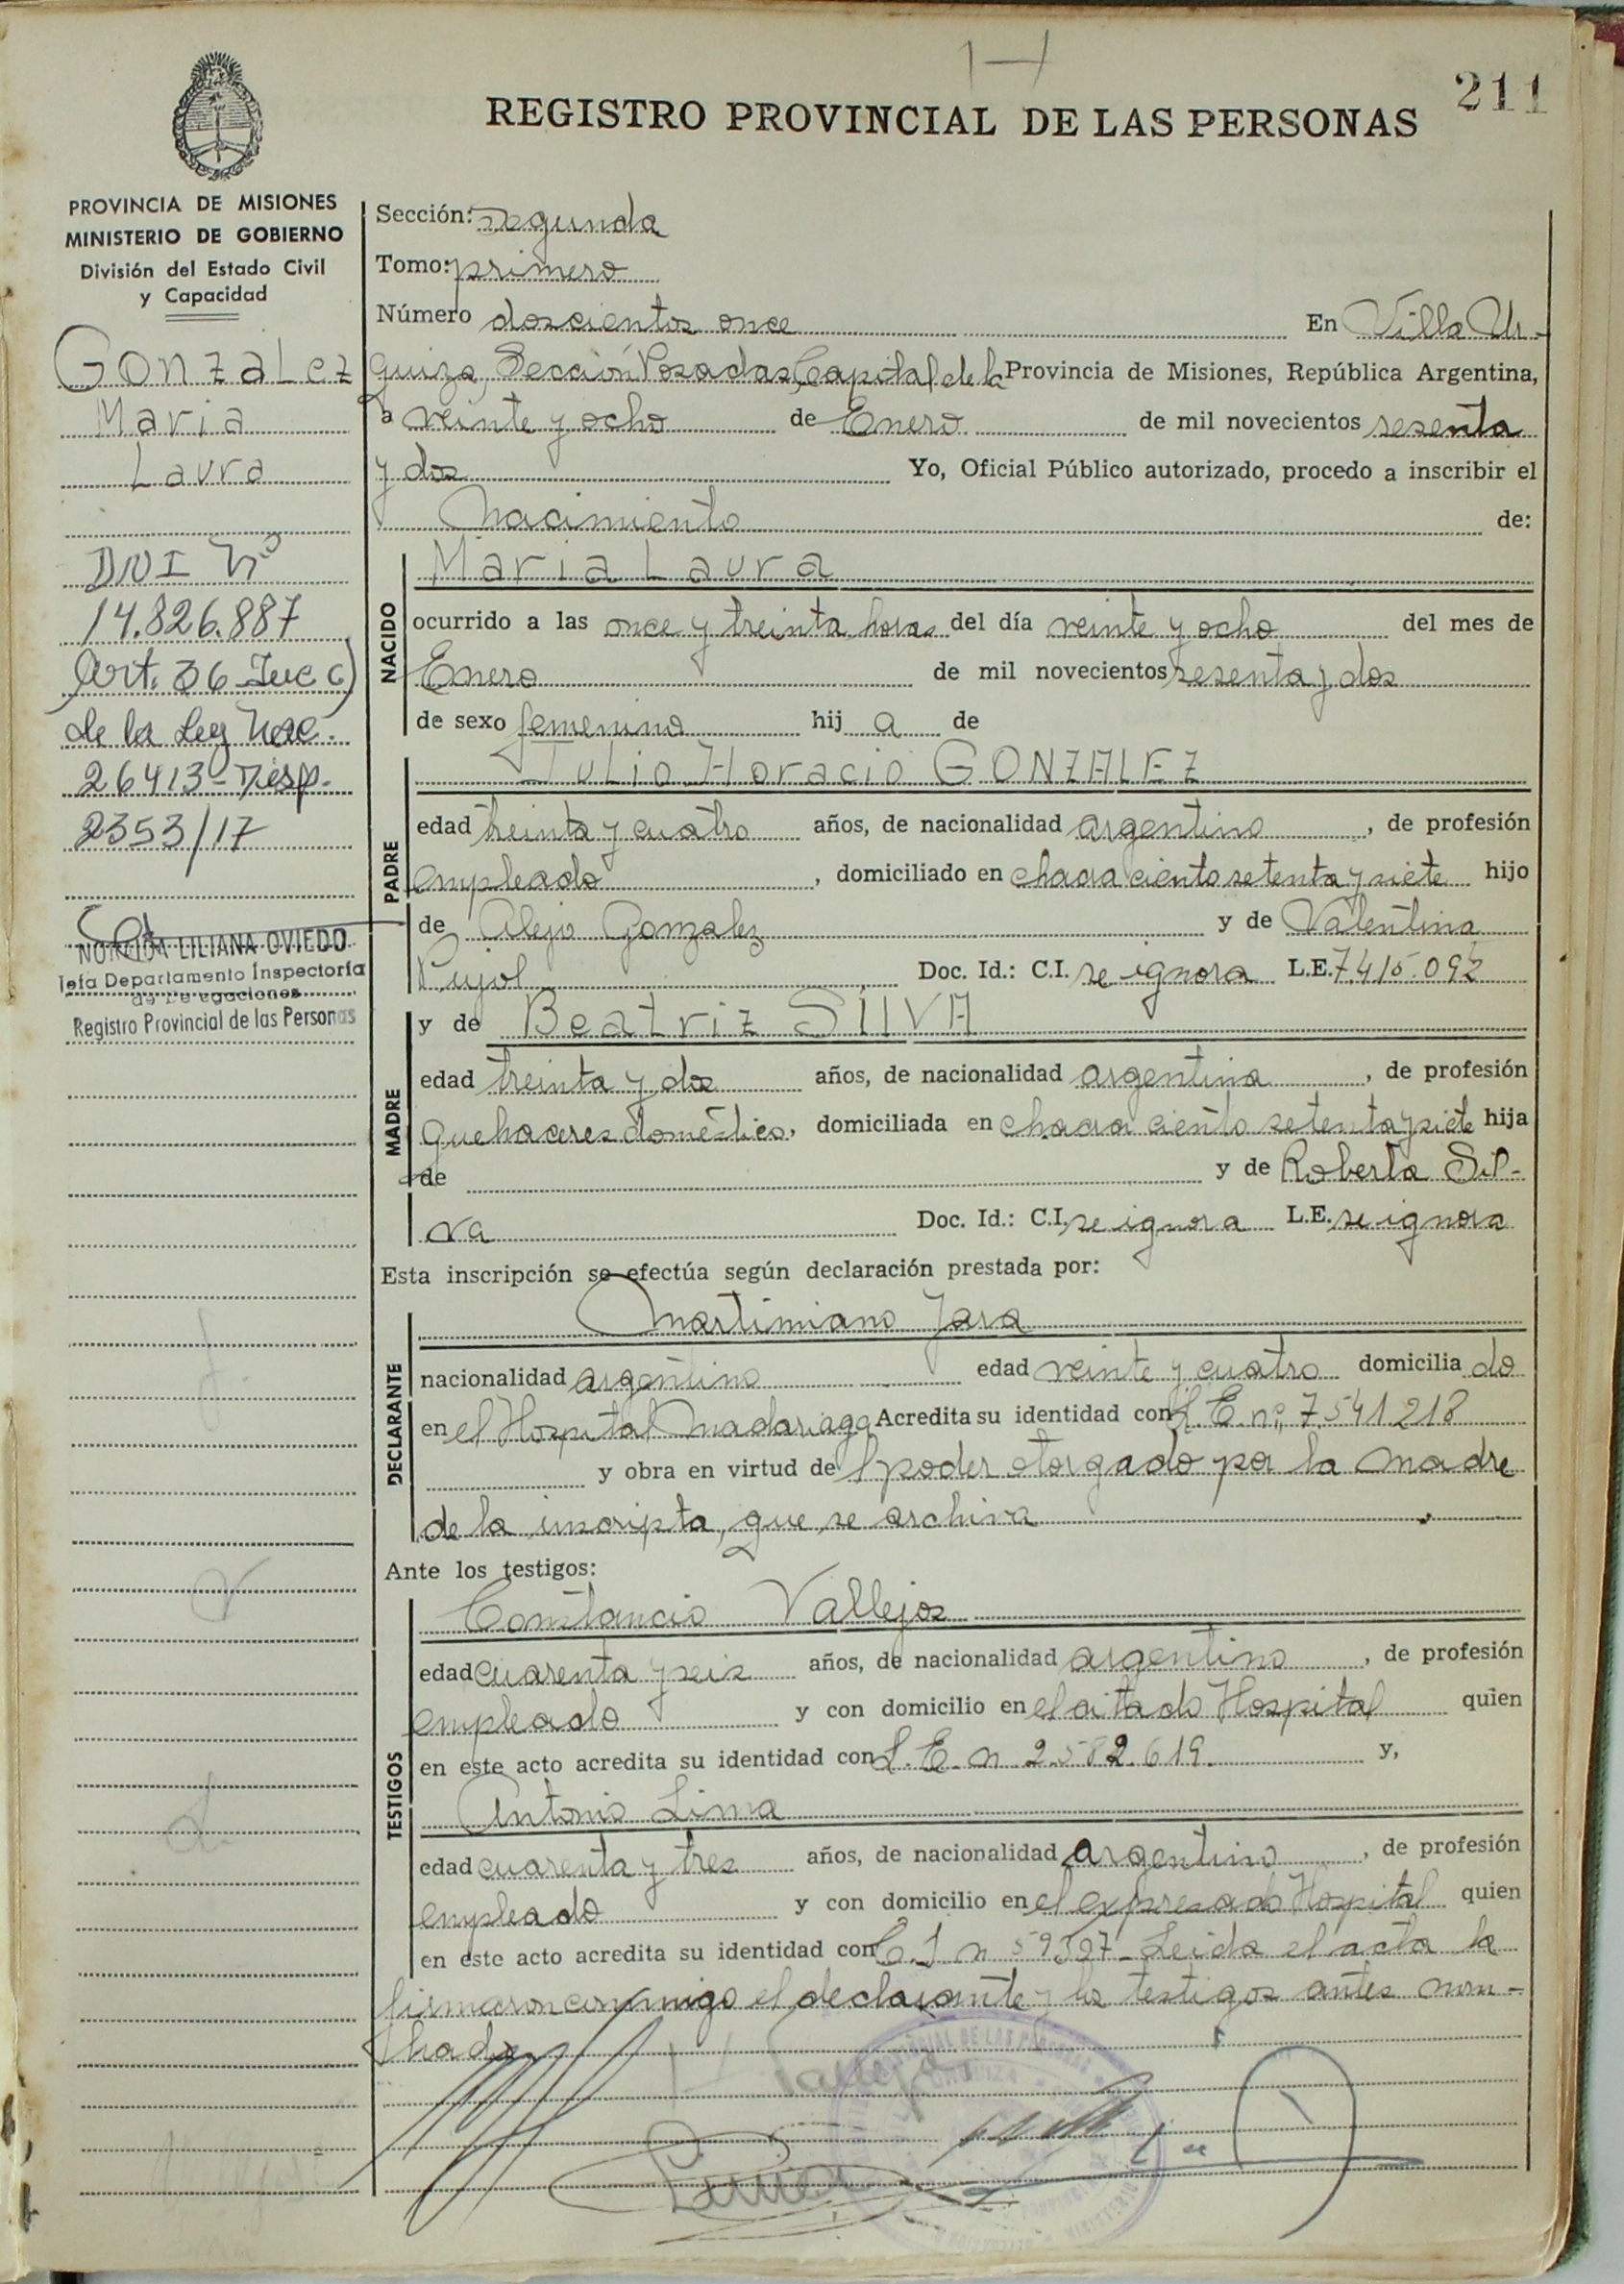 211
REGISTRO PROVINCIAL DE LAS PERSONAS
PROVINCIA DE MISIONES
MINISTERIO DE GOBIERNO
División del Estado Civil
y Capacidad
GONZALEZ
Maria
Laura
DNI Nº
14.826.887
Art. 36 Inc c)
de la Ley Nac.
26413 - Disp.
2353/17
NORMA LILIANA OVIEDO
Jefa Departamento Inspectoría
de Delegaciones
Registro Provincial de las Personas
Sección: segunda
Tomo: primero
Número doscientos once En Villa Ur-
quiza, Sección Posadas, Capital de la Provincia de Misiones, República Argentina,
a veinte y ocho de Enero de mil novecientos sesenta
y dos Yo, Oficial Público autorizado, procedo a inscribir el
Nacimiento de:
NACIDO
Maria Laura
ocurrido a las once y treinta horas del día veinte y ocho del mes de
Enero de mil novecientos sesenta y dos
de sexo femenino hij a de
PADRE
Julio Horacio GONZALEZ
edad treinta y cuatro años, de nacionalidad argentino, de profesión
empleado, domiciliado en chacra ciento setenta y siete hijo
de Alejo Gonzalez y de Valentina
Pujol Doc. Id.: C.I. se ignora L.E. 7.415.092
MADRE
y de Beatriz SILVA
edad treinta y dos años, de nacionalidad argentina, de profesión
quehaceres domésticos, domiciliada en chacra ciento setenta y siete hija
de y de Roberta Sil-
va Doc. Id.: C.I. se ignora L.E. se ignora
Esta inscripción se efectúa según declaración prestada por:
DECLARANTE
Martimiano Jara
nacionalidad argentino edad veinte y cuatro domicilia do
en el Hospital Madariaga Acredita su identidad con L.E. nº 7.541218
y obra en virtud de l poder otorgado por la madre
de la inscripta, que se archiva
Ante los testigos:
TESTIGOS
Constancio Vallejos
edad cuarenta y seis años, de nacionalidad argentino, de profesión
empleado y con domicilio en el citado Hospital quien
en este acto acredita su identidad con L.E. n 2.582.619. y,
Antonio Lima
edad cuarenta y tres años, de nacionalidad argentino, de profesión
empleado y con domicilio en el expresado Hospital quien
en este acto acredita su identidad con C.I n Leida el acta la
firmaron conmigo el declarante y los testigos antes nom-
brados
Lima